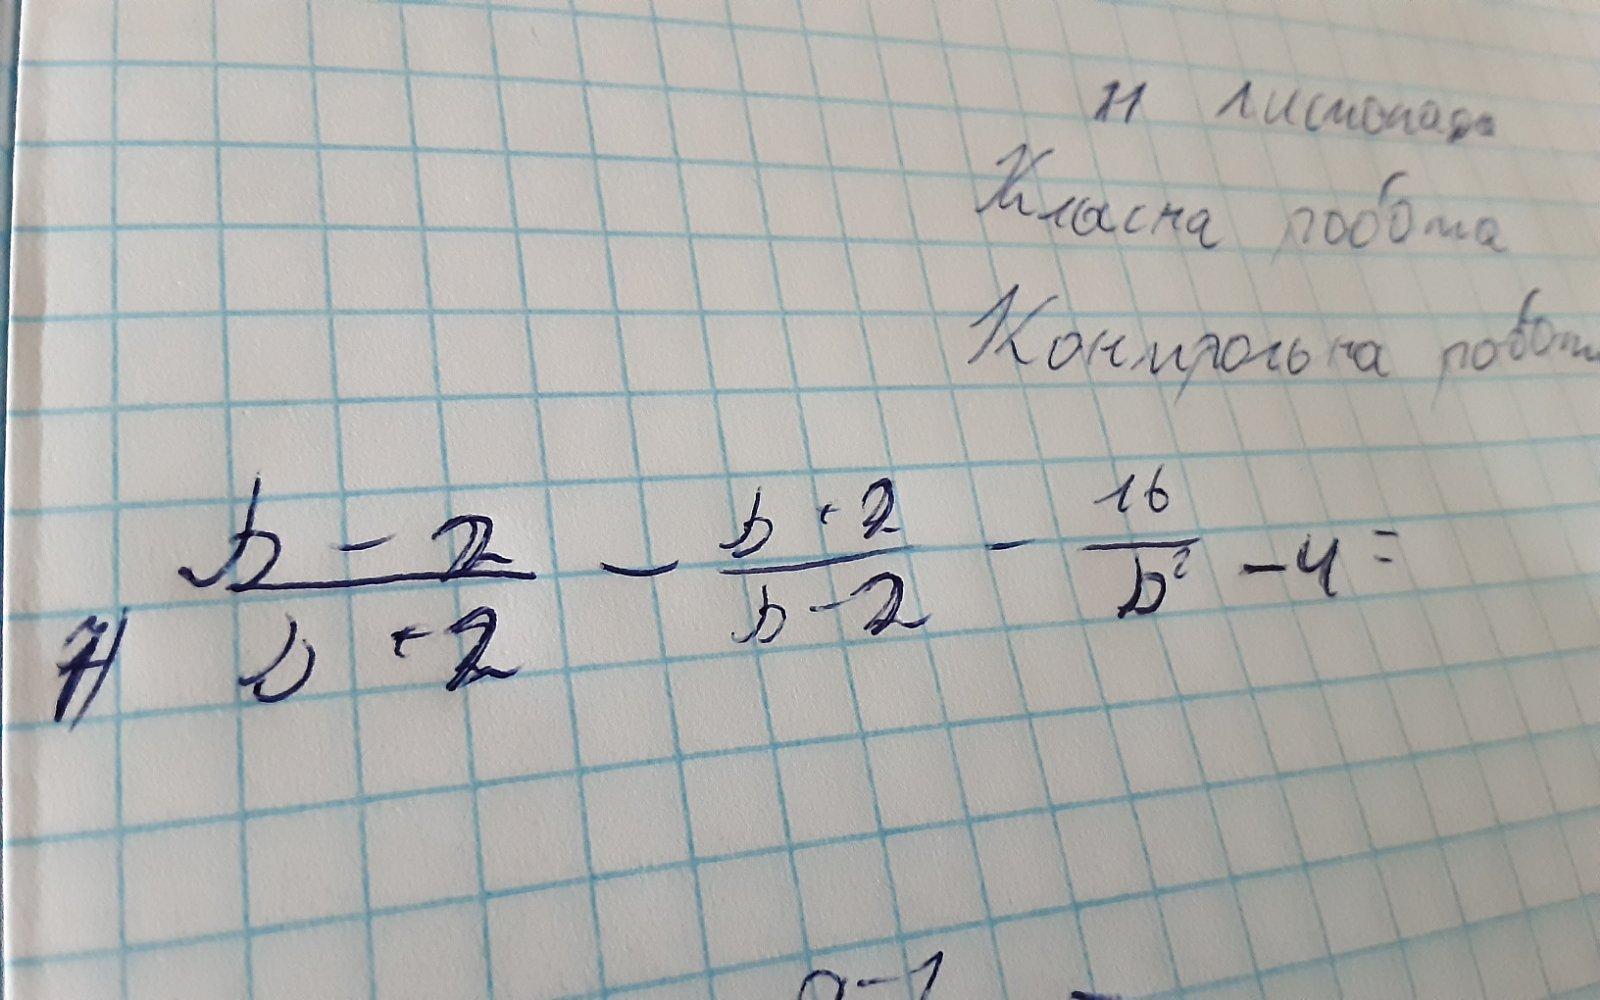 11 листопада
Класна робота
Контрольна робот
b - 2 / b + 2 - b + 2 / b - 2 - 16 / b² - 4 =